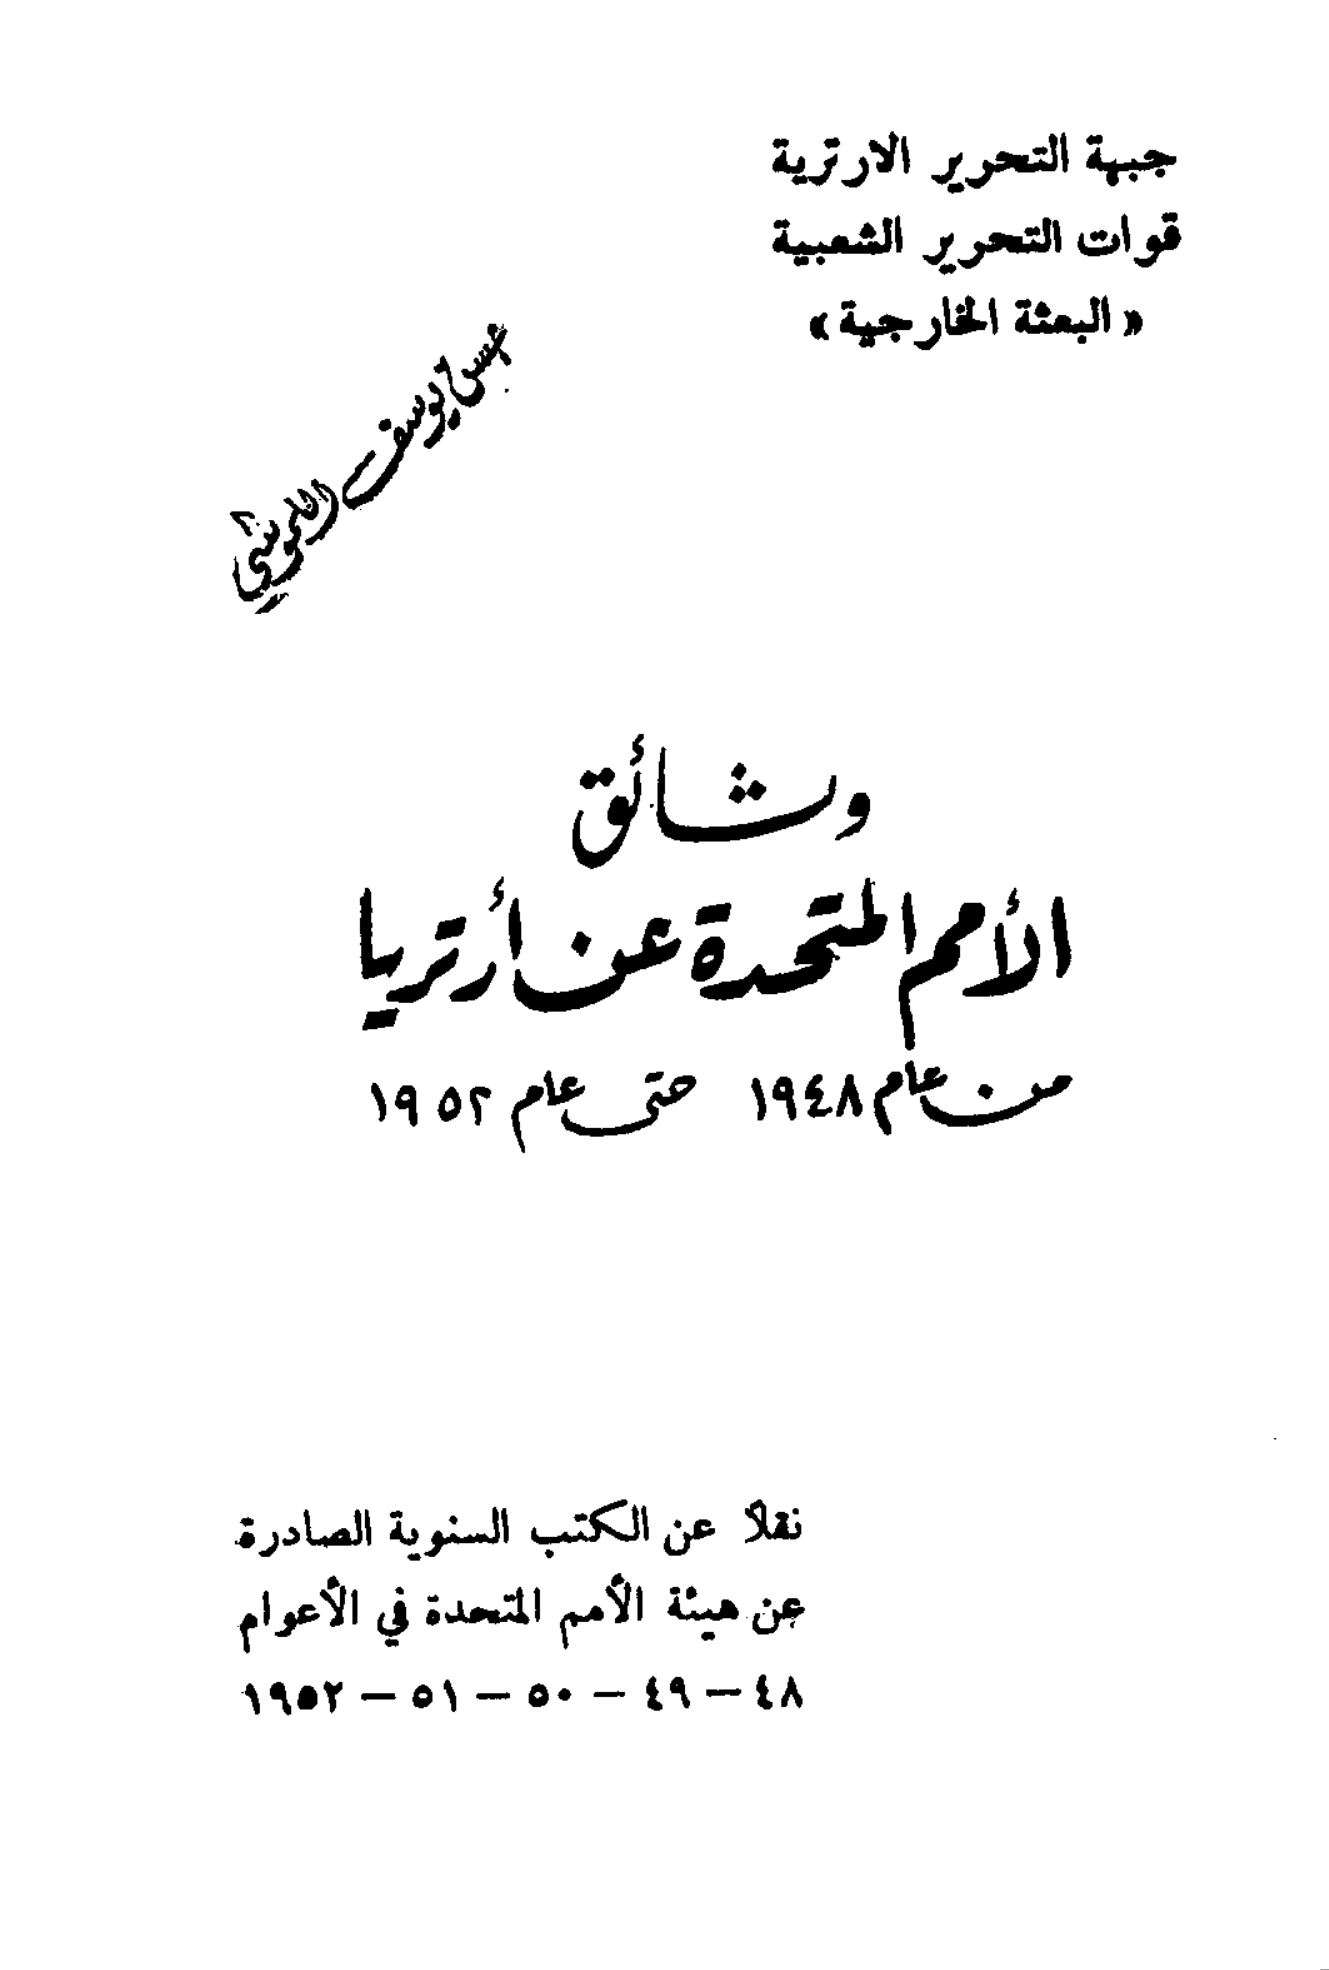 جبهة التحرير الارترية
قوات التحرير الشعبية
« البعثة الخارجية »
يوسف
وثائق
الأمم المتحدة عن أرتريا
من عام ١٩٤٨ حتى عام ١٩٥٢
نقلاً عن الكتب السنوية الصادرة
عن هيئة الأمم المتحدة في الأعوام
٤٨ – ٤٩ – ٥٠ – ٥١ – ١٩٥٢